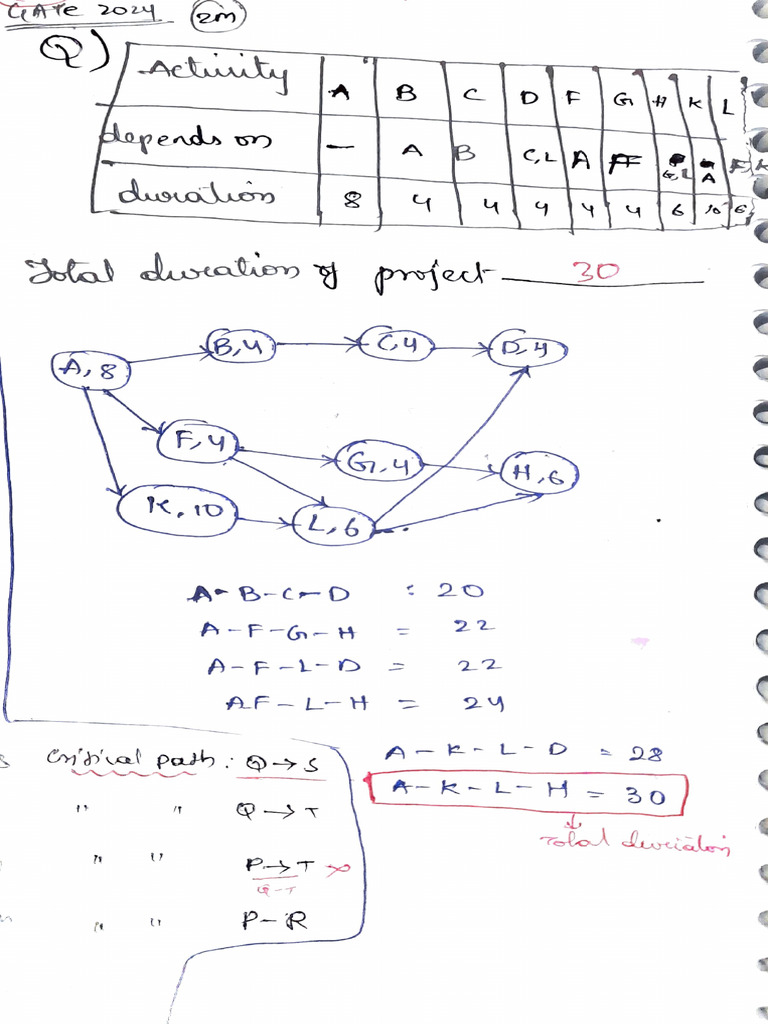 GATE 2024 (2m)
Q)
Activity A B C D F G H K L
depends on — A B C,L A F G,L A F,K
duration 8 4 4 4 4 4 6 10 6
Total duration of project 30
A,8 B,4 C,4 D,4
F,4 G,4 H,6
K,10 L,6
A-B-C-D : 20
A-F-G-H = 22
A-F-L-D = 22
AF-L-H = 24
Critical path: Q→S
" " Q→T
" " P→T ×
Q-T
" " P-R
A-K-L-D = 28
A-K-L-H = 30
Total duration